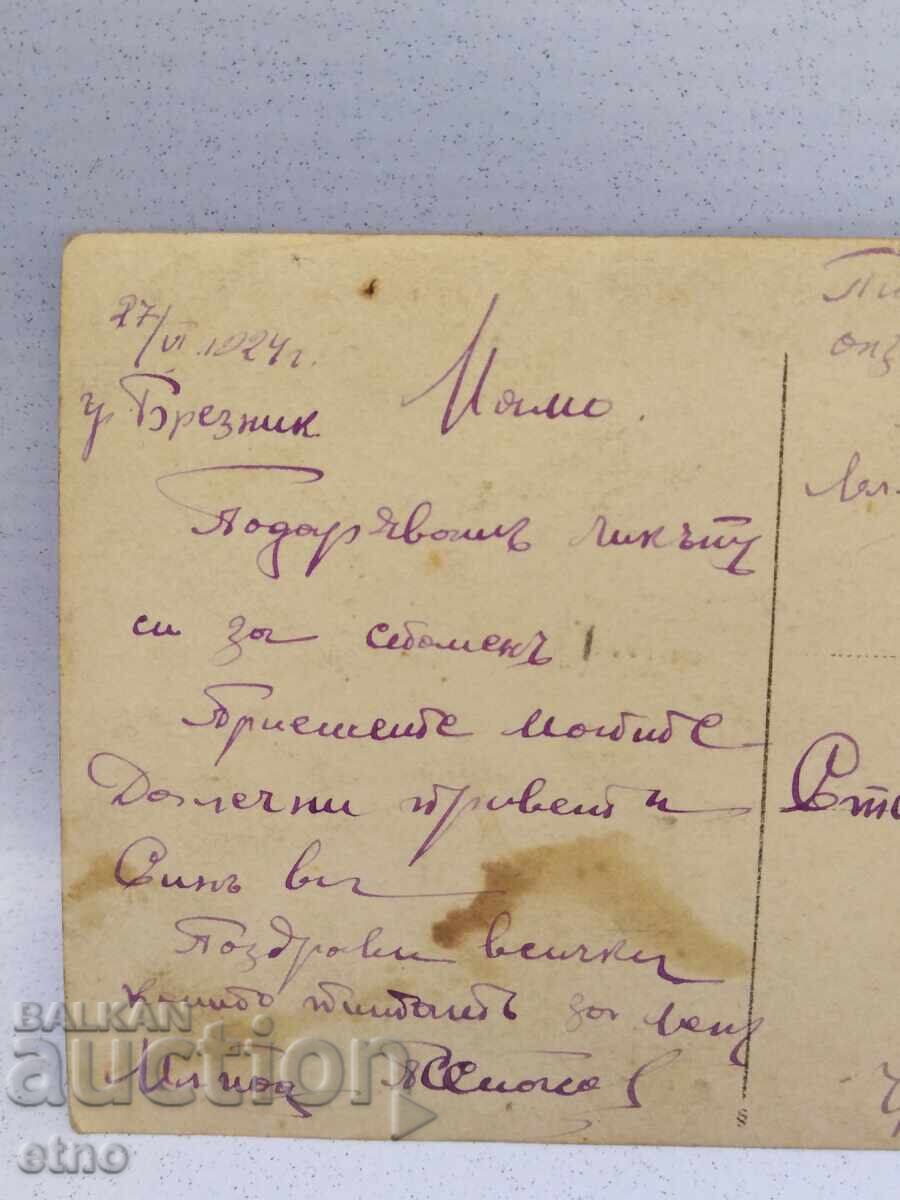 27/VI 1924 г.
гр. Брезник
Мамо.
Подарявамъ ликътъ
си за споменъ!
Приемете моите
Далечни привети
Синъ ви
Поздрави всички
които питатъ за мен
Ст
BALKAN
auction
etno
s